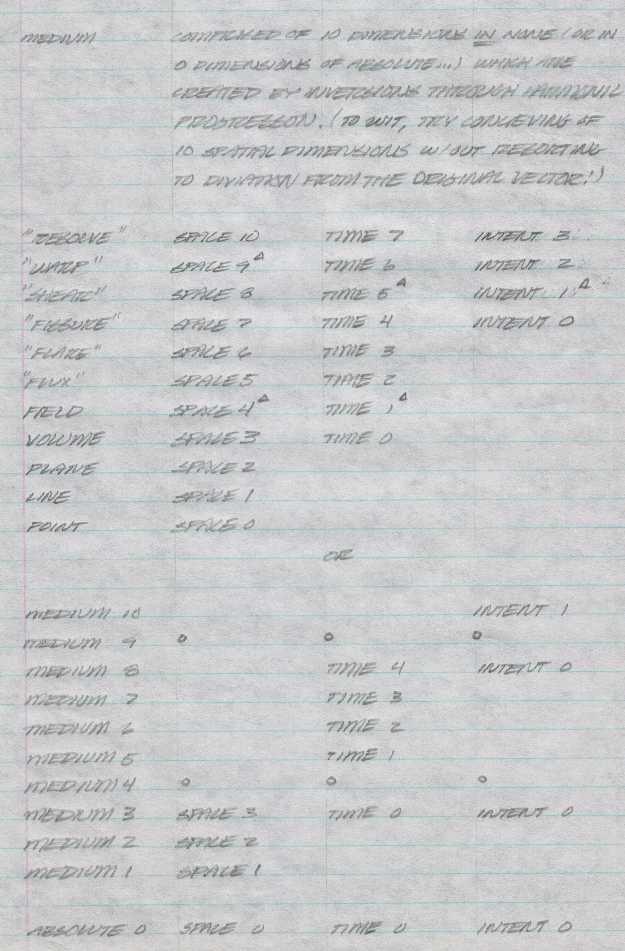 MEDIUM COMPRISED OF 10 DIMENSIONS IN NONE (OR IN
0 DIMENSIONS OF ABSOLUTE...) WHICH ARE
CREATED BY INVERSIONS THROUGH HARMONIC
PROGRESSON. (TO WIT, TRY CONCEIVING OF
10 SPATIAL DIMENSIONS W/OUT RESORTING
TO DIVIATION FROM THE ORIGINAL VECTOR!)
"RESOLVE" SPACE 10 TIME 7 INTENT 3
"WARP" SPACE 9Δ TIME 6 INTENT 2
"SHEAR" SPACE 8 TIME 5Δ INTENT 1Δ
"FISSURE" SPACE 7 TIME 4 INTENT 0
"FLARE" SPACE 6 TIME 3
"FLUX" SPACE 5 TIME 2
FIELD SPACE 4Δ TIME 1Δ
VOLUME SPACE 3 TIME 0
PLANE SPACE 2
LINE SPACE 1
POINT SPACE 0
OR
MEDIUM 10 INTENT 1
MEDIUM 9 o o o
MEDIUM 8 TIME 4 INTENT 0
MEDIUM 7 TIME 3
MEDIUM 6 TIME 2
MEDIUM 5 TIME 1
MEDIUM 4 o o o
MEDIUM 3 SPACE 3 TIME 0 INTENT 0
MEDIUM 2 SPACE 2
MEDIUM 1 SPACE 1
ABSOLUTE 0 SPACE 0 TIME 0 INTENT 0